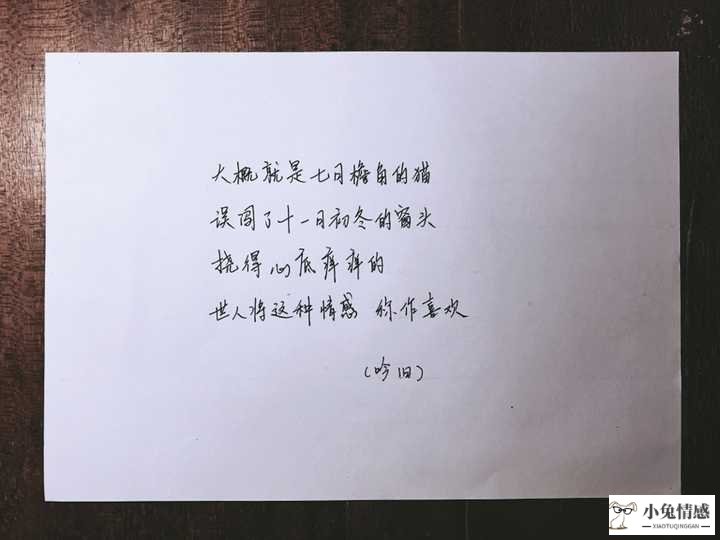 大概就是七月檐角的猫
误闯了十一月初冬的窗头
挠得心底痒痒的
世人将这种情感 称作喜欢
(吟旧)
小兔情感
XIAOTUQINGGAN